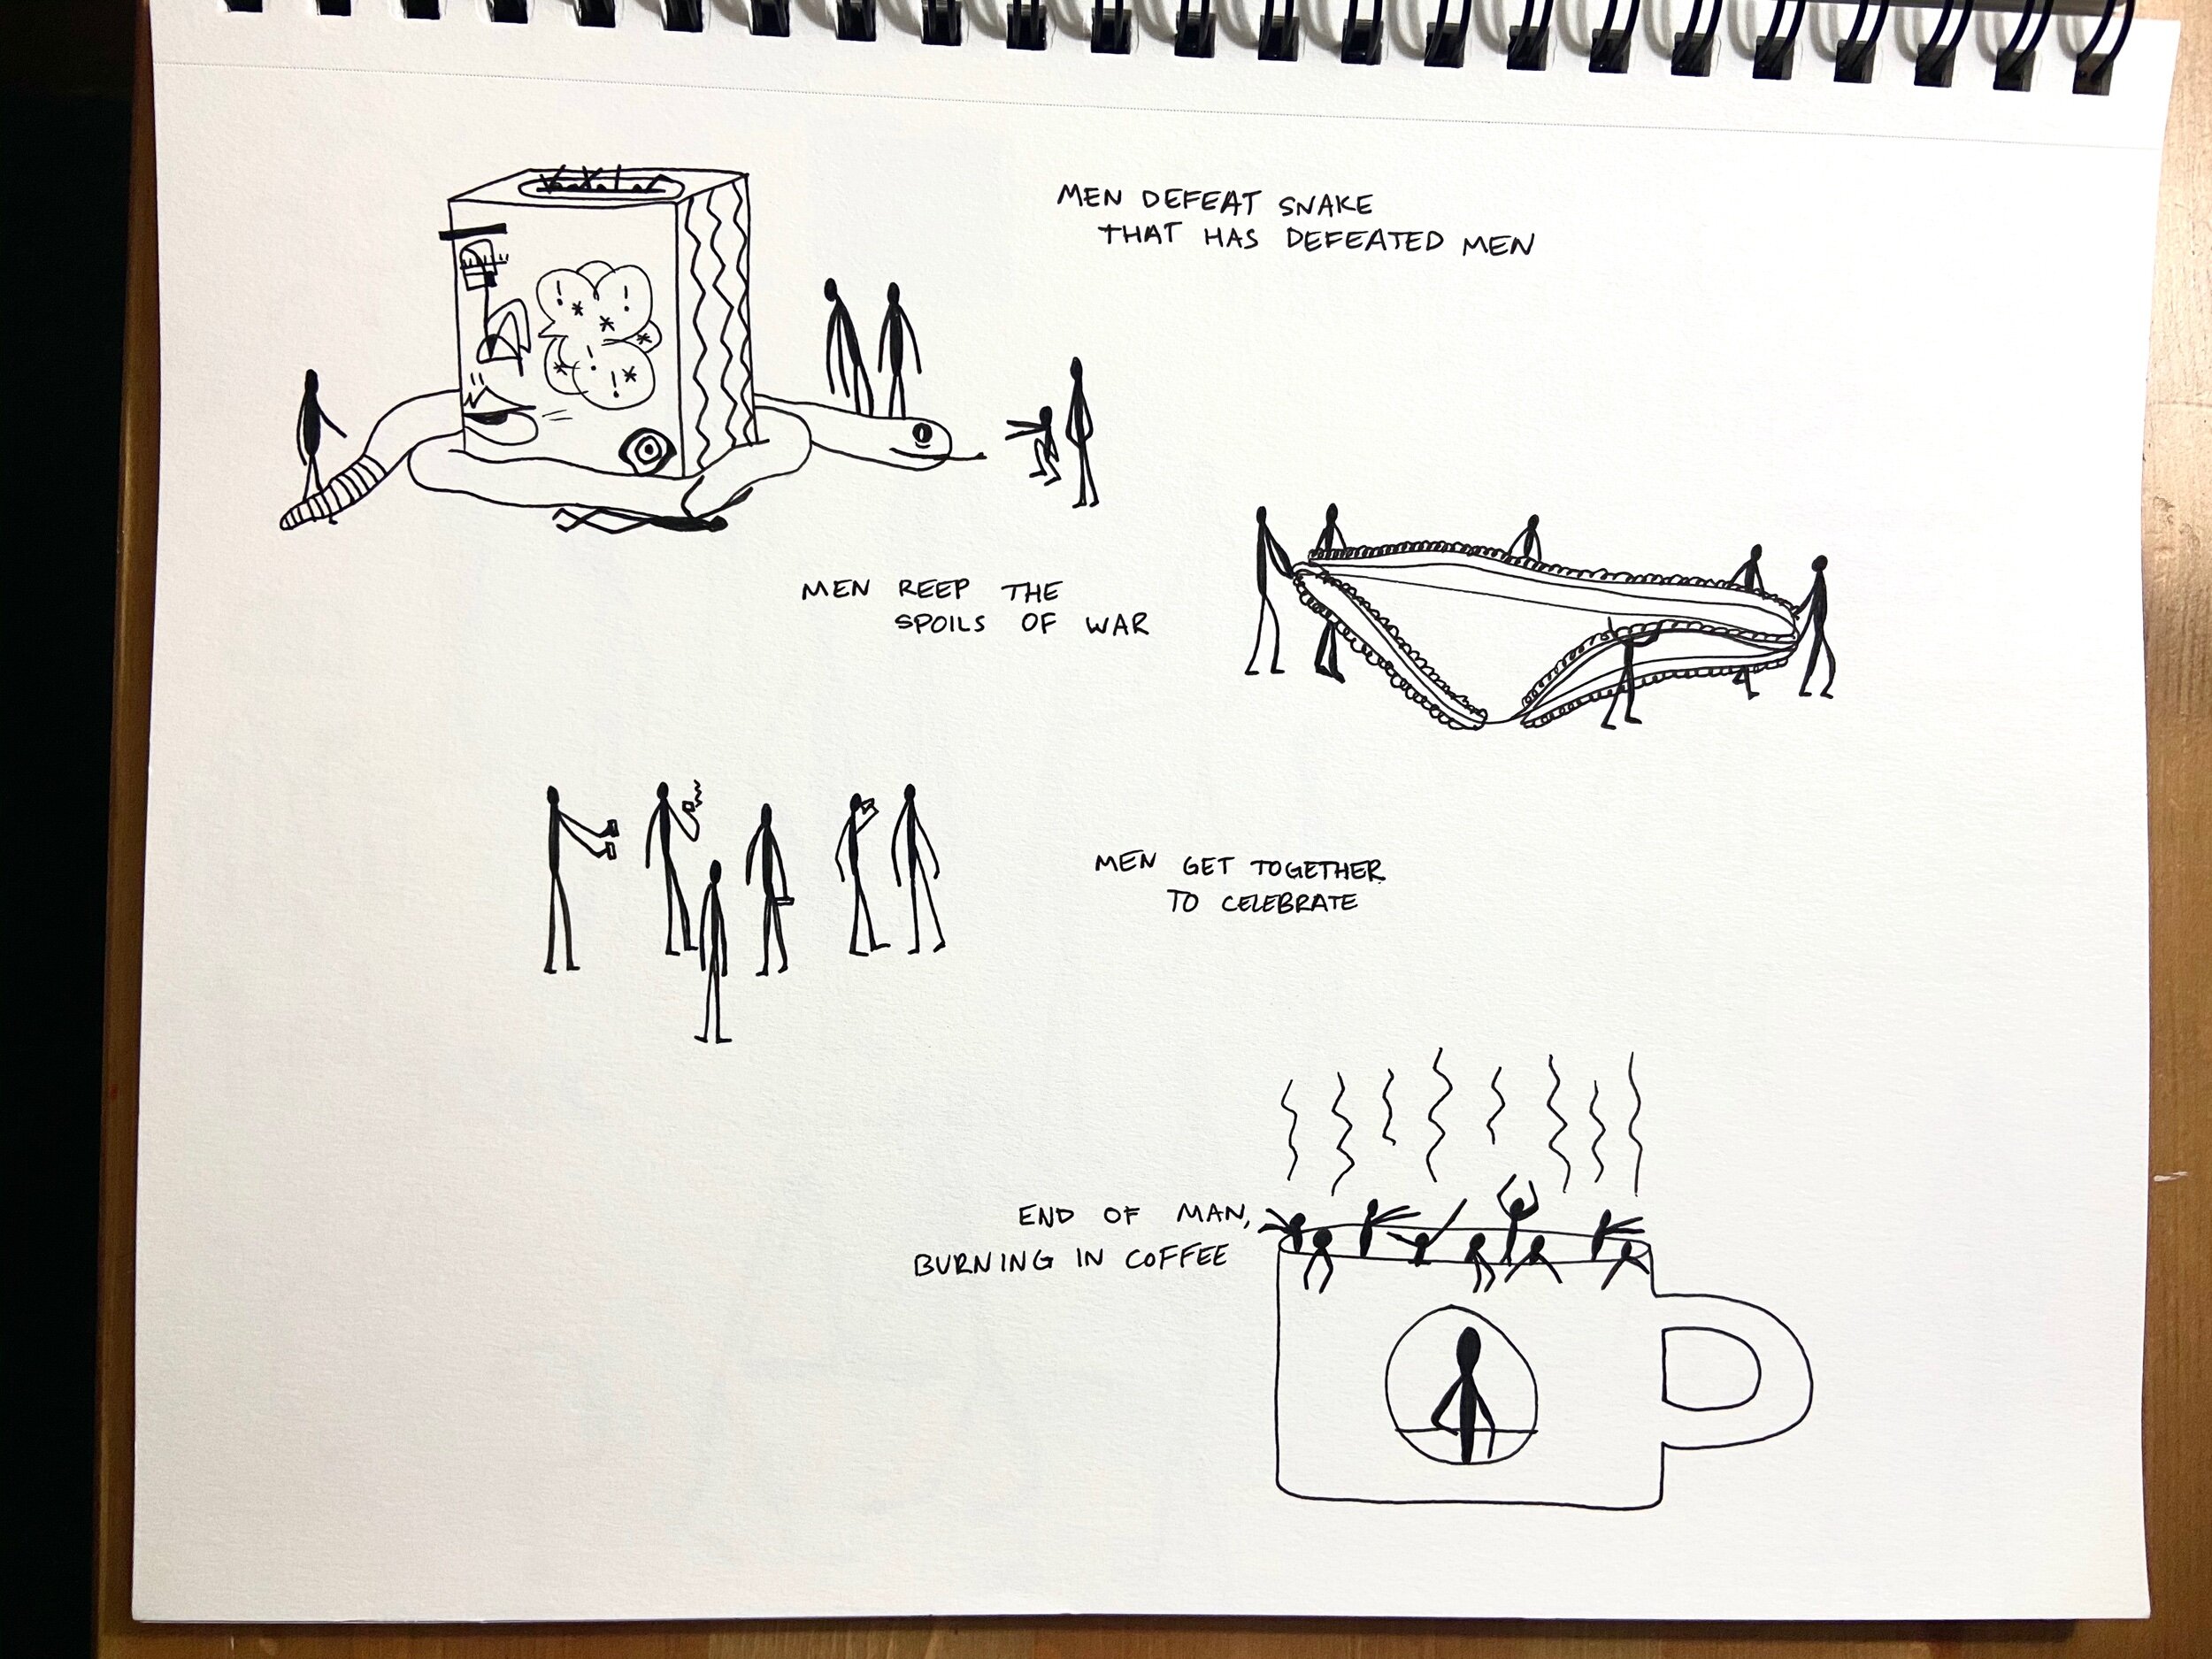 MEN DEFEAT SNAKE
THAT HAS DEFEATED MEN
MEN REEP THE
SPOILS OF WAR
MEN GET TOGETHER
TO CELEBRATE
END OF MAN,
BURNING IN COFFEE